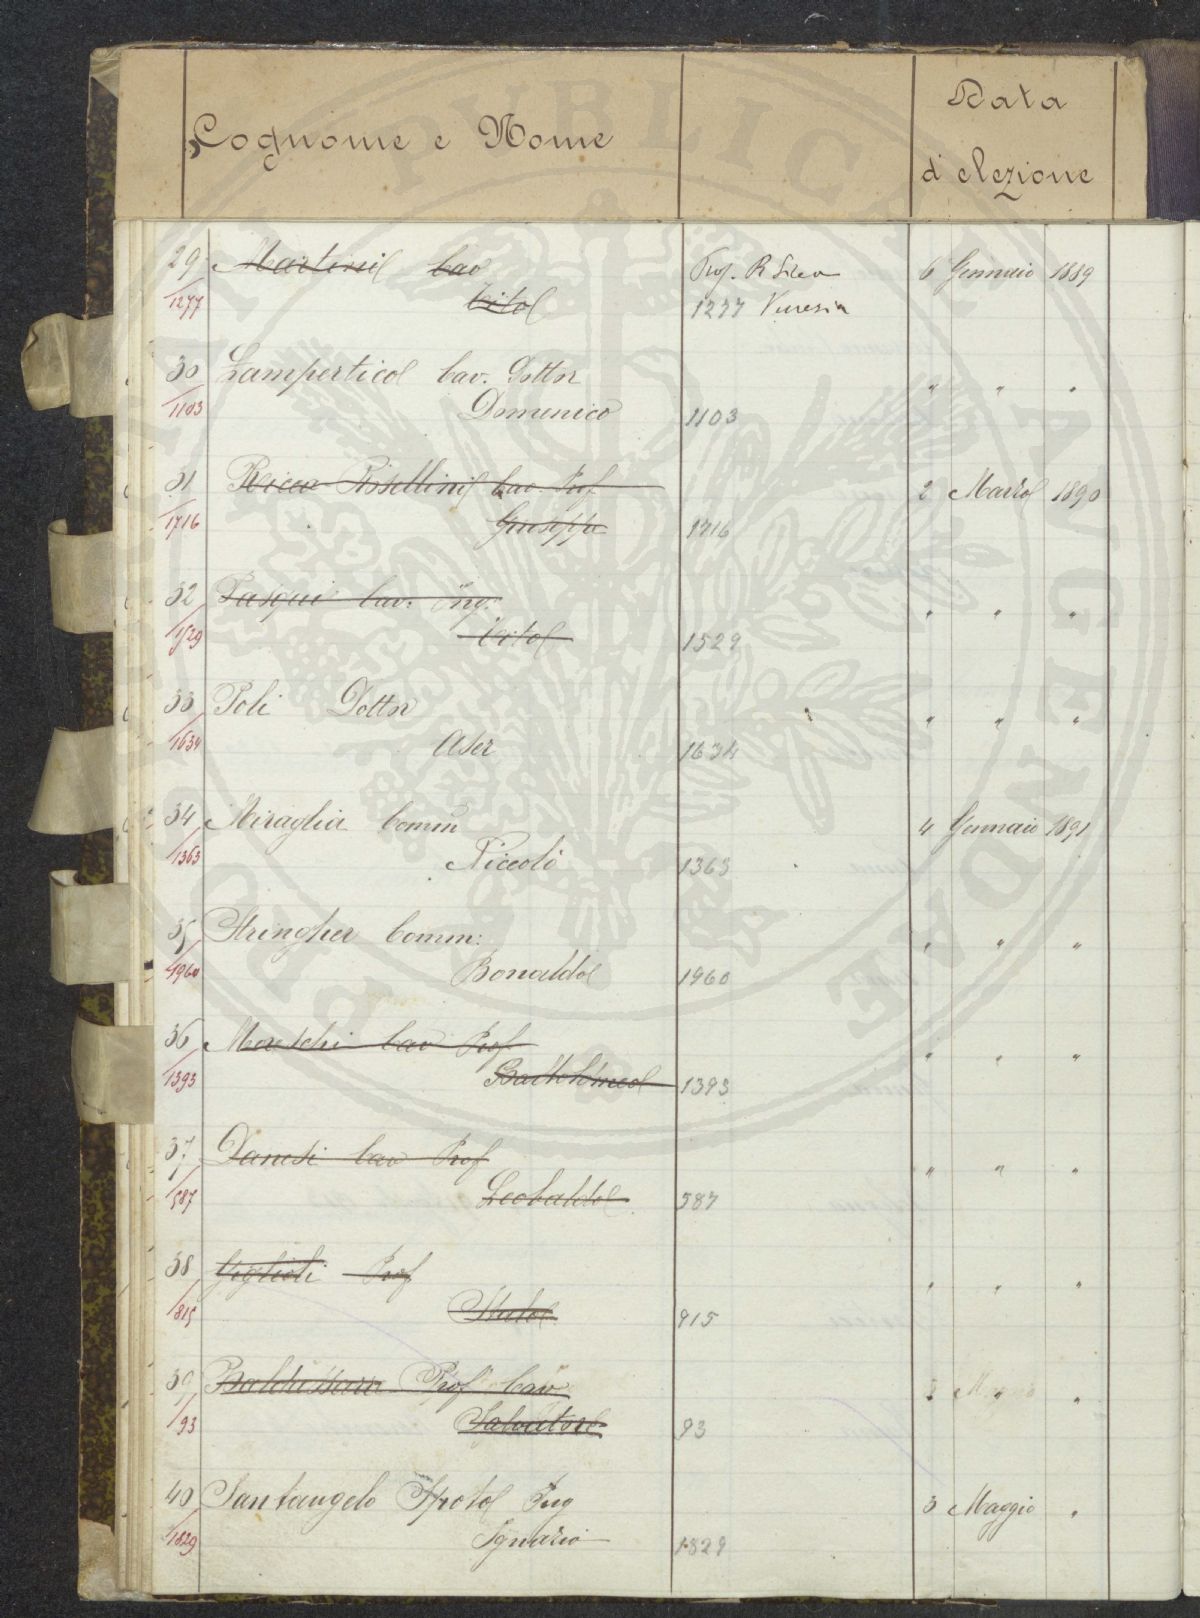 Cognome e Nome
Data
d'elezione
29 Martini Cav Prof. R Liceo 6 Gennaio 1889
1277 Tito 1277 Venezia
30 Lampertico Cav. Dottor " " "
1103 Domenico 1103
31 Ricca Rosellini Cav. Prof 2 Marzo 1890
1716 Giuseppe 1716
32 Pasqui Cav. Ing. " " "
1529 Tito 1529
33 Poli Dottor " " "
1634 Aser 1634
34 Miraglia Comm 4 Gennaio 1891
1363 Niccolò 1363
35 Stringher Comm: " " "
1960 Bonaldo 1960
36 Moreschi Cav Prof " " "
1393 Bartolomeo 1393
37 Danesi Cav Prof " " "
587 Leobaldo 587
38 Giglioli Prof " " "
815 Italo 815
39 Baldassarre Prof Cav 3 Maggio "
93 Salvatore 93
40 Santangelo Spoto Ing 3 Maggio "
1829 Ignazio 1829
PUBLICAE AUGENDAE